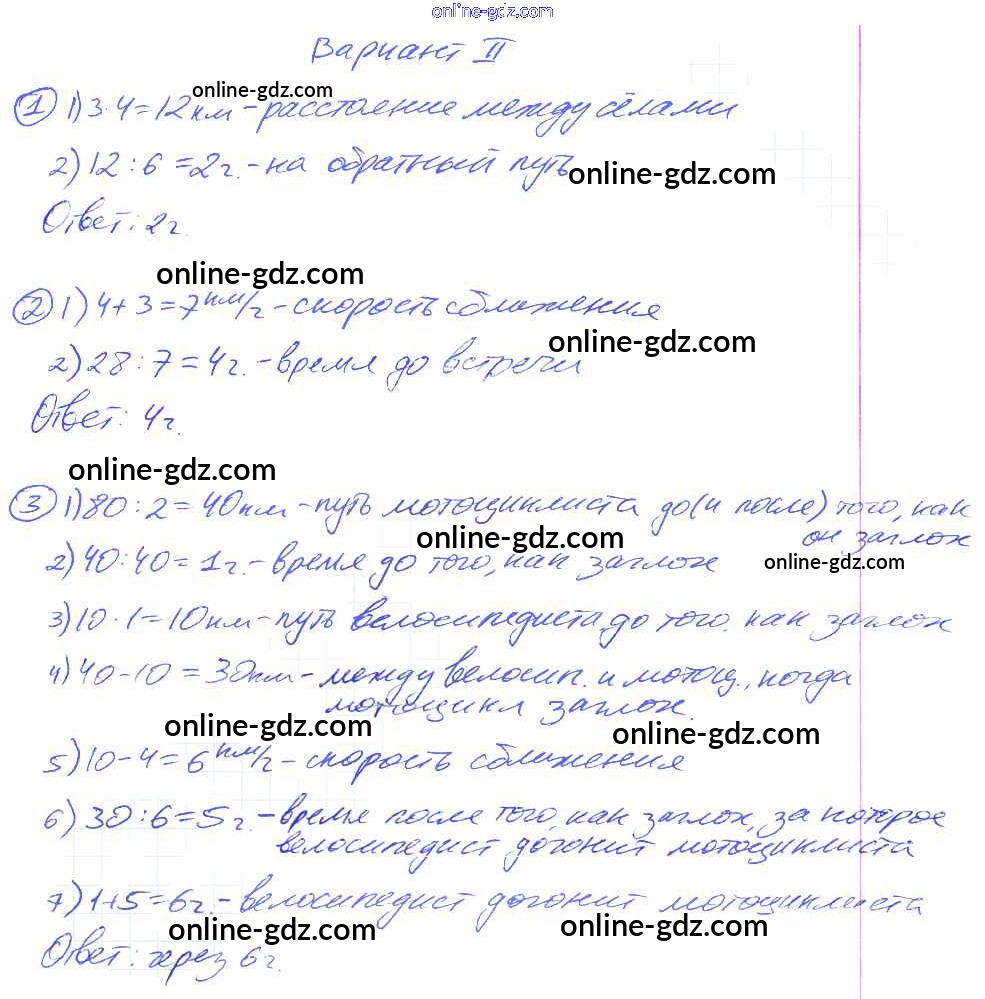 online-gdz.com
Вариант II
online-gdz.com
① 1) 3·4=12км-расстояние между сёлами
2) 12:6=2г.-на обратный путь
online-gdz.com
Ответ: 2г.
online-gdz.com
② 1) 4+3=7км/г-скорость сближения
online-gdz.com
2) 28:7=4г.-время до встречи
Ответ: 4г.
online-gdz.com
③ 1) 80:2=40км-путь мотоциклиста до(и после) того, как
он заглох
online-gdz.com
2) 40:40=1г.-время до того, как заглох
online-gdz.com
3) 10·1=10км-путь велосипедиста до того как заглох
4) 40-10=30км-между велосип. и мотоц., когда
мотоцикл заглох.
online-gdz.com
online-gdz.com
5) 10-4=6км/г-скорость сближения
6) 30:6=5г.-время после того, как заглох, за которое
велосипедист догонит мотоциклиста
7) 1+5=6г.-велосипедист догонит мотоциклиста
online-gdz.com
online-gdz.com
Ответ: через 6г.